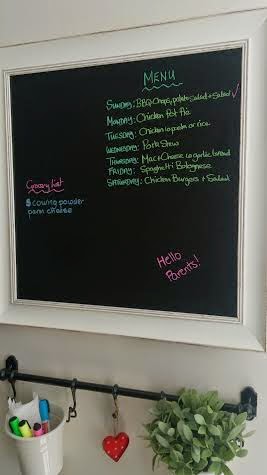 MENU
SUNDAY: BBQ Chops, potato salad + salad ✓
MONDAY: Chicken Pot Pie
TUESDAY: Chicken w pasta or rice
WEDNESDAY: Pork Stew
THURSDAY: Mac + Cheese w garlic bread
FRIDAY: Spaghetti Bolognese
SATURDAY: Chicken Burgers + Salad
Grocery List
powder
parm cheese
Hello
Parents!